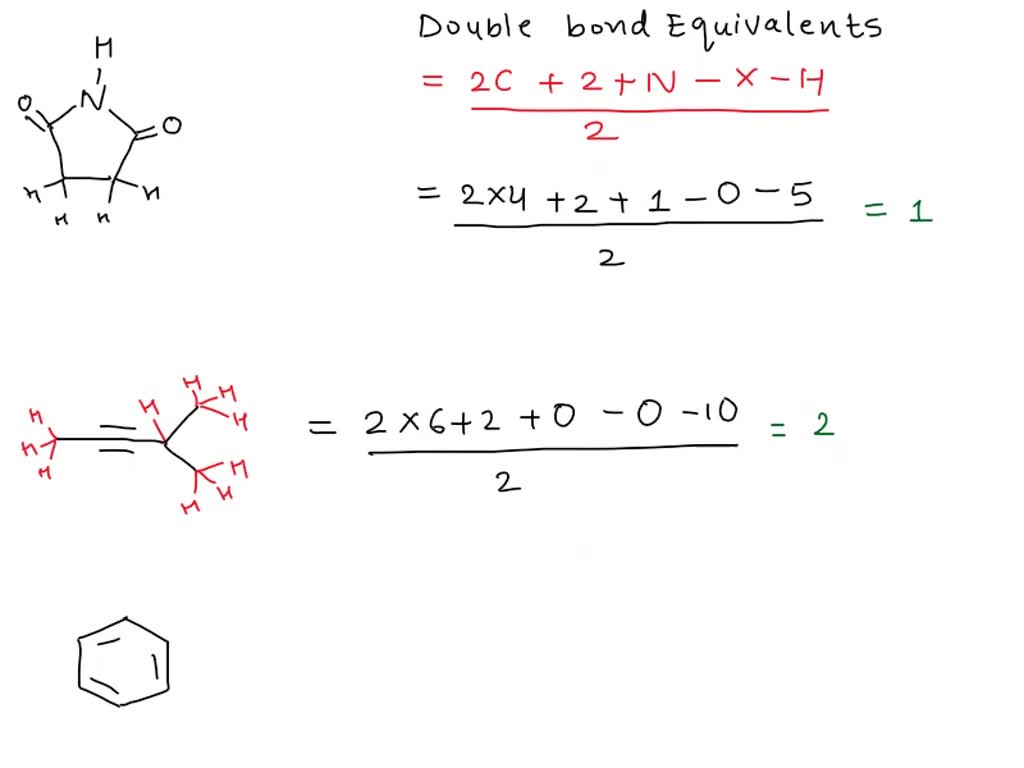 Double bond Equivalents
= 2C + 2 + N - X - H
2
= 2×4 + 2 + 1 - 0 - 5 = 1
2
H
N
O
O
H H
H H
= 2×6+2 + 0 - 0 - 10 = 2
2
H H
H H H
H
H H
H H